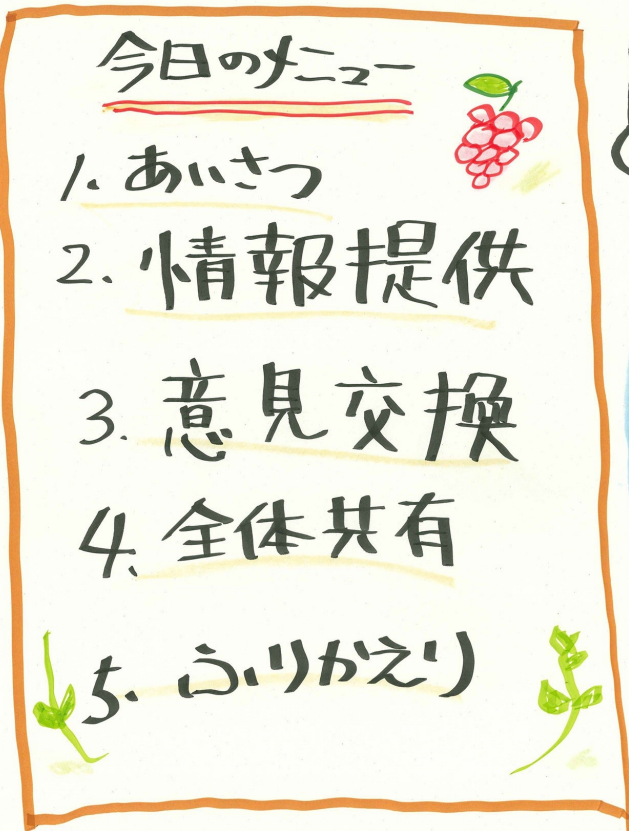 今日のメニュー
1. あいさつ
2. 情報提供
3. 意見交換
4. 全体共有
5. ふりかえり